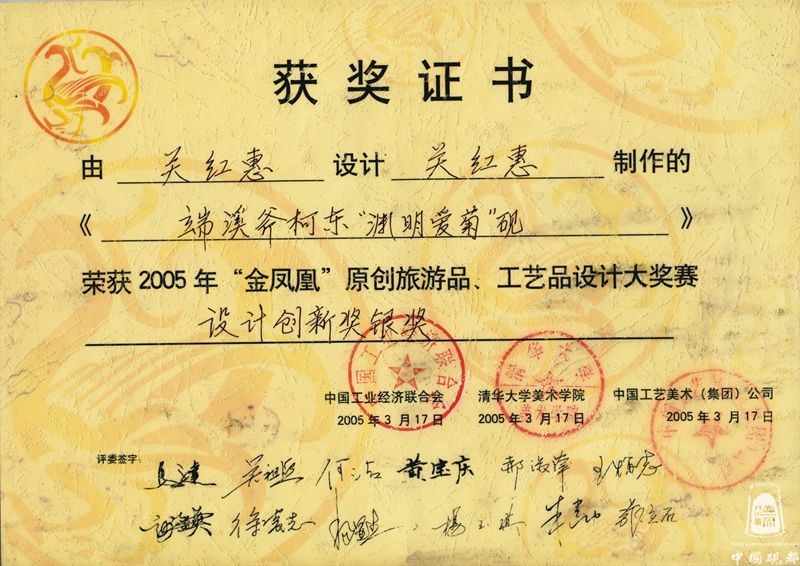 获奖证书
由 关红惠 设计 关红惠 制作的
《 端溪斧柯东“渊明爱菊”砚 》
荣获 2005 年“金凤凰”原创旅游品、工艺品设计大奖赛
设计创新奖银奖
中国工业经济联合会 清华大学美术学院 中国工艺美术（集团）公司
2005年3月17日 2005年3月17日 2005年3月17日
评委签字：
何洁 黄宝庆
中國硯都